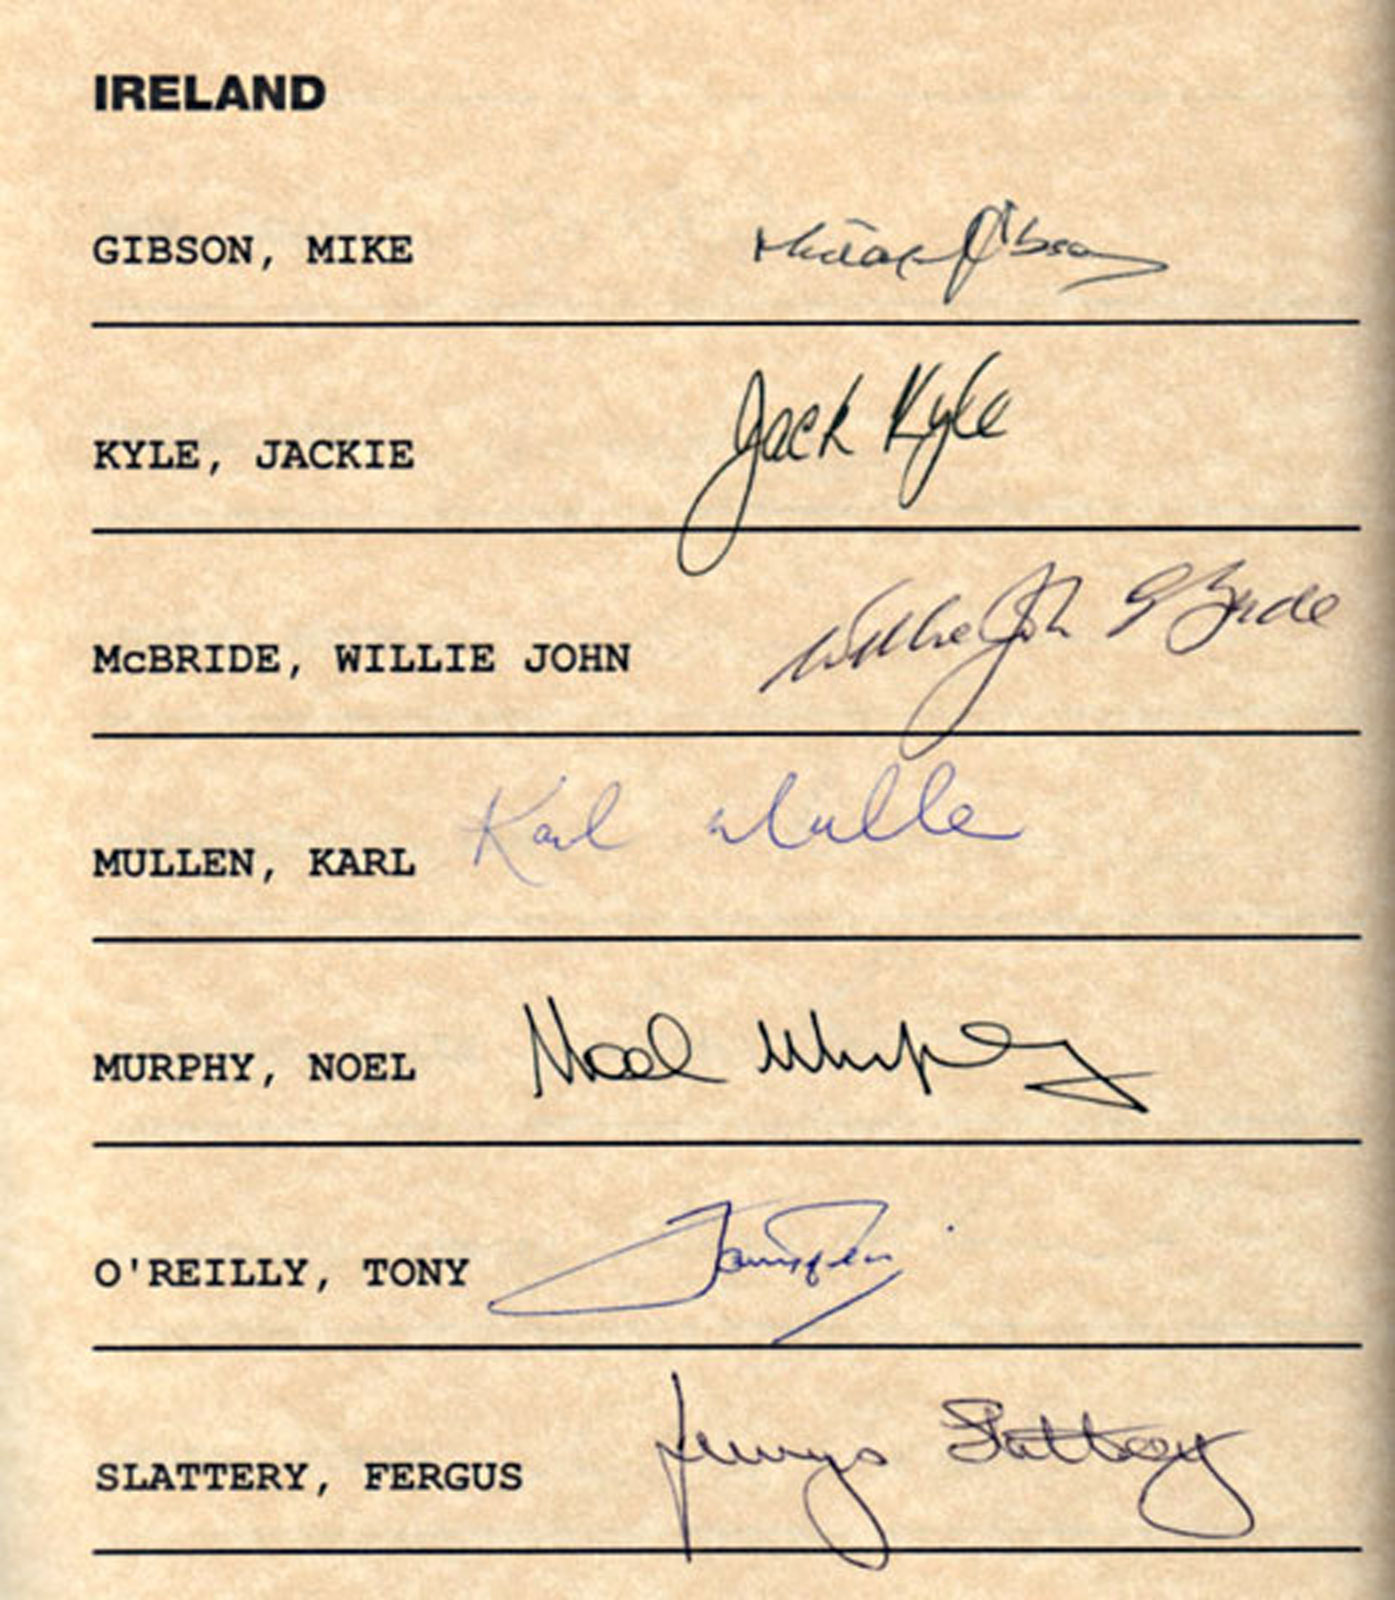 IRELAND
GIBSON, MIKE Michael Gibson
KYLE, JACKIE Jack Kyle
McBRIDE, WILLIE JOHN Willie John McBride
MULLEN, KARL Karl Mullen
MURPHY, NOEL Noel Murphy
O'REILLY, TONY
SLATTERY, FERGUS Fergus Slattery